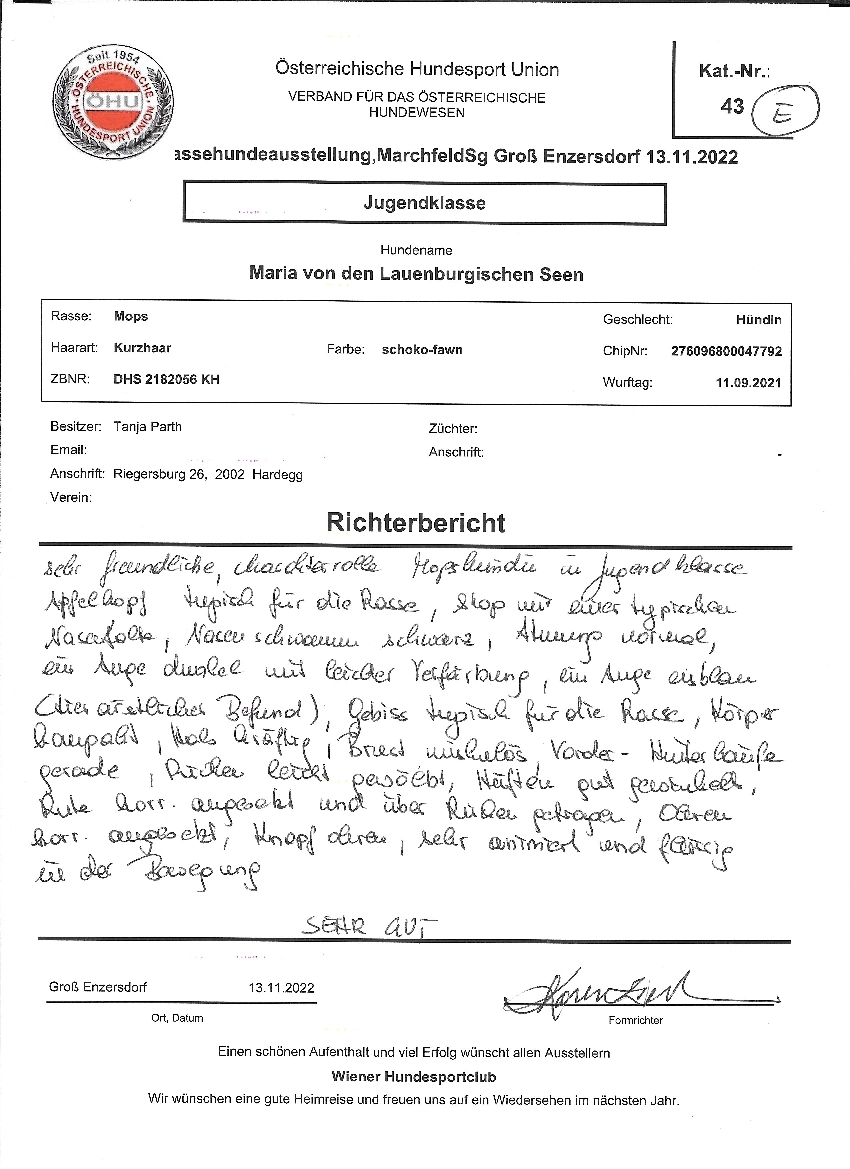 Seit 1954
ÖSTERREICHISCHE
ÖHU
HUNDESPORT UNION
Österreichische Hundesport Union
VERBAND FÜR DAS ÖSTERREICHISCHE
HUNDEWESEN
Kat.-Nr.:
43 E
assehundeausstellung,MarchfeldSg Groß Enzersdorf 13.11.2022
Jugendklasse
Hundename
Maria von den Lauenburgischen Seen
Rasse: Mops Geschlecht: Hündin
Haarart: Kurzhaar Farbe: schoko-fawn ChipNr: 276096800047792
ZBNR: DHS 2182056 KH Wurftag: 11.09.2021
Besitzer: Tanja Parth Züchter:
Email: Anschrift: -
Anschrift: Riegersburg 26, 2002 Hardegg
Verein:
Richterbericht
sehr freundliche, Mopshündin in Jugendklasse
Apfelkopf typisch für die Rasse, Stop mit einer typischen
Nasenfalte, Nasenschwamm schwarz, Atmung normal,
ein Auge dunkel mit leichter Verfärbung, ein Auge eisblau
(tierärztlicher Befund), Gebiss typisch für die Rasse, Körper
kompakt, Hals kräftig, Brust muskulös, Vorder- Hinterläufe
gerade, Rücken leicht gewölbt, Hüften gut gewinkelt,
Rute korr. angesetzt und über Rücken getragen, Ohren
korr. angesetzt, Knopfohren, sehr animiert und flüssig
in der Bewegung
SEHR GUT
Groß Enzersdorf 13.11.2022
Ort, Datum Formrichter
Einen schönen Aufenthalt und viel Erfolg wünscht allen Ausstellern
Wiener Hundesportclub
Wir wünschen eine gute Heimreise und freuen uns auf ein Wiedersehen im nächsten Jahr.